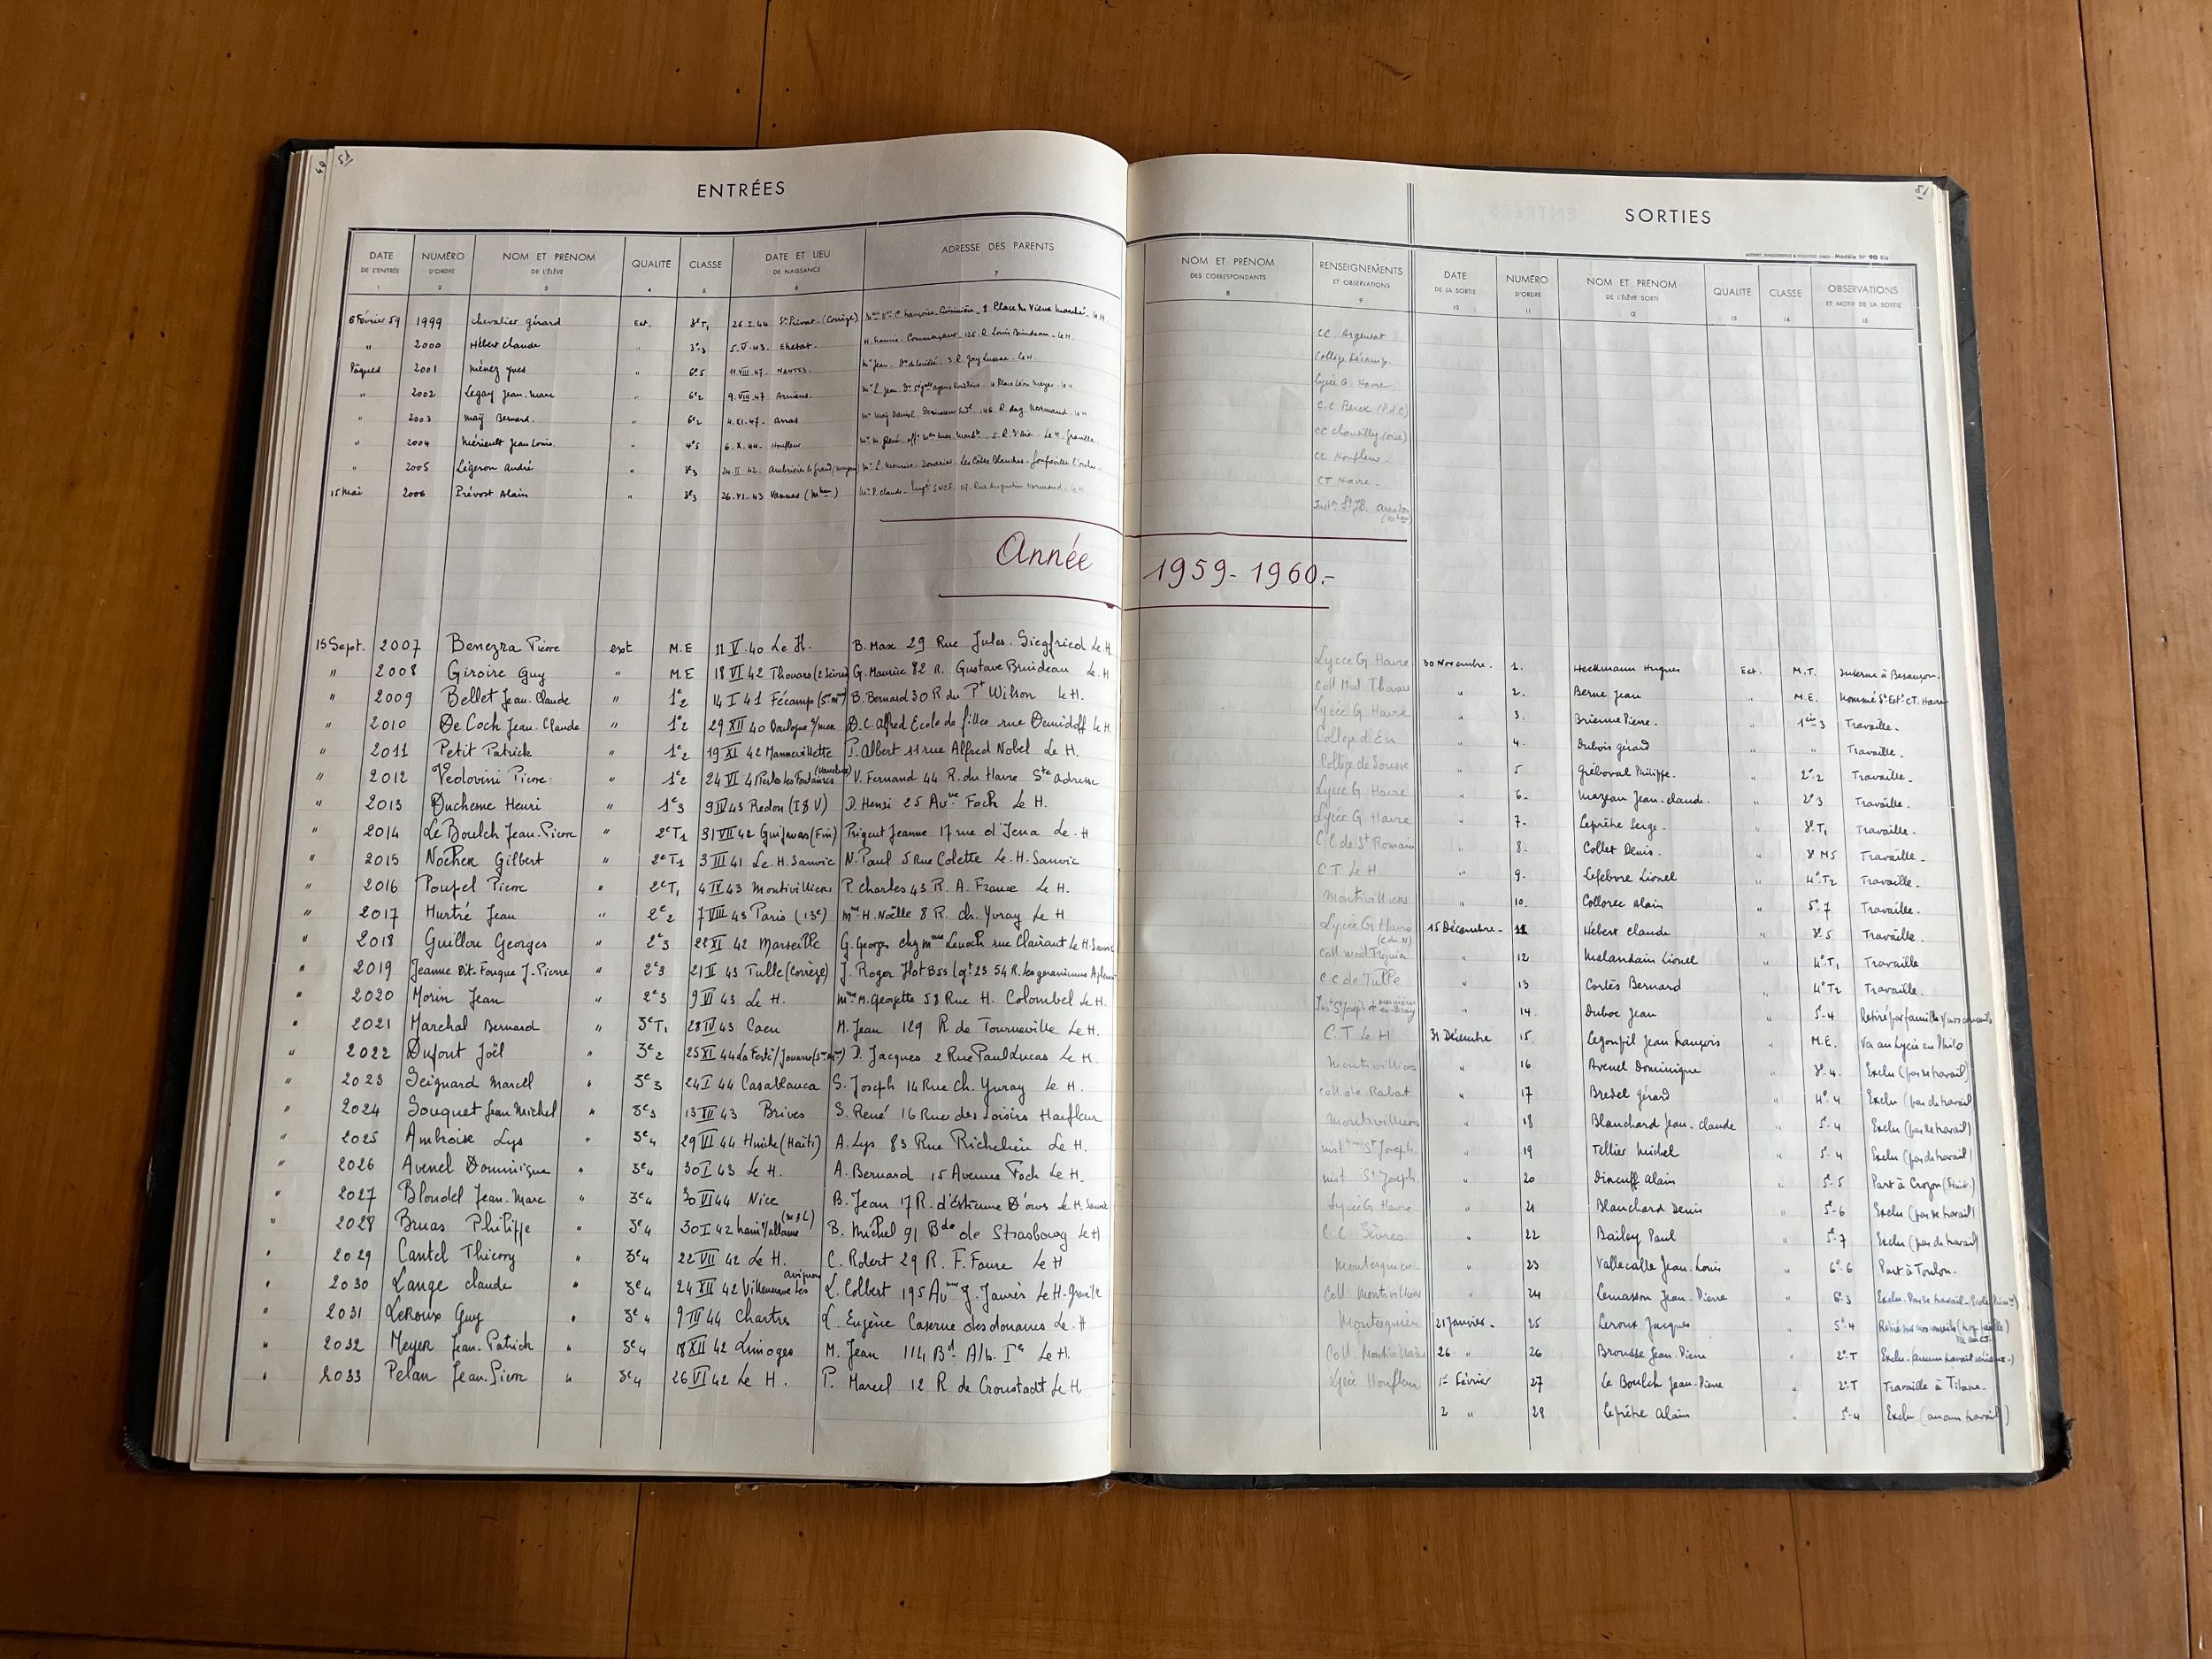 49
51
ENTRÉES
DATE DE L'ENTRÉE 1 NUMÉRO D'ORDRE 2 NOM ET PRÉNOM DE L'ÉLÈVE 3 QUALITÉ 4 CLASSE 5 DATE ET LIEU DE NAISSANCE 6 ADRESSE DES PARENTS 7
6 Février 59 1999 Chevalier Gérard Ext. 3eT1 26.I.44 St Privat (Corrèze) 8 Place du Vieux Marché Le H.
" 2000 Hébert Claude " 3e3 5.V.43. Etretat. Commerçant 126 R. Louis Brindeau Le H.
Pâques 2001 Ménez Yves " 6e5 11.VIII.47. NANTES. Mr Jean 3 R. Gay Lussac. Le H.
" 2002 Legay Jean-Marc " 6e2 9.VIII.47 Amiens. Place Léon Meyer. Le H
" 2003 Maÿ Bernard. " 6e2 4.XI.47. Arras Mr Maÿ Daniel 146 R. Aug. Normand. Le H
" 2004 Mérieult Jean Louis. " 4e5 6.X.44. Honfleur Le H. Graville.
" 2005 Légeron André " 3e3 24.II.42. Ambrières le Grand Mr L. Maurice Les Côtes Blanches
15 Mai 2006 Prévost Alain " 3e3 26.VI.43 Vannes Mr P. Claude SNCF 117 Rue Augustin Normand Le H
Année
15 Sept. 2007 Benezra Pierre ext M.E 11 V.40 Le H. B. Max 29 Rue Jules Siegfried Le H.
" 2008 Giroire Guy " M.E 18 VI 42 Thouars (2 Sèvres) G. Maurice 82 R. Gustave Brindeau Le H
" 2009 Bellet Jean-Claude " 1e2 14 I 41 Fécamp B. Bernard 30 R du Pt Wilson Le H.
" 2010 De Cock Jean-Claude " 1e2 29 XII 40 Boulogne s/mer D.C. Alfred Ecole de filles rue Demidoff Le H.
" 2011 Petit Patrick " 1e2 19 XI 42 Mannevillette P. Albert 11 rue Alfred Nobel Le H.
" 2012 Vedovini Pierre " 1e2 24 VI 41 Pernes les Fontaines (Vaucluse) V. Fernand 44 R. du Havre Ste Adresse
" 2013 Duchesne Henri " 1e3 9 IV 43 Redon (I & V) D. Henri 25 Avue Foch Le H.
" 2014 Le Boulch Jean-Pierre " 2eT1 31 VII 42 Guimas (Fin) Prigent Jeanne 17 rue d'Iena Le H
" 2015 Nocher Gilbert " 2eT1 3 III 41 Le H. Sanvic N. Paul 5 Rue Colette Le H. Sanvic
" 2016 Poupel Pierre " 2eT1 4 IV 43 Montivilliers P. Charles 43 R. A. France Le H.
" 2017 Hurtré Jean " 2e2 7 VIII 43 Paris (13e) Mme H. Noëlle 8 R. Ch. Yvray Le H
" 2018 Guillou Georges " 2e3 22 XI 42 Marseille G. Georges chez Mme rue Clairaut Le H. Sanvic
" 2019 Jeanne-Dit-Fouque J-Pierre " 2e3 21 II 43 Tulle (Corrèze) J. Roger 54 R. Les geraniums
" 2020 Morin Jean " 2e3 9 VI 43 Le H. Mme M. Georgette 58 Rue H. Colombel Le H.
" 2021 Marchal Bernard " 3eT1 28 IV 43 Caen M. Jean 129 R de Tourneville Le H.
" 2022 Dufont Joël " 3e2 25 XI 44 La Ferté s/Jouarre D. Jacques 2 Rue Paul Lucas Le H.
" 2023 Seignard Marcel " 3e3 24 I 44 Casablanca S. Joseph 14 Rue Ch. Yvray Le H.
" 2024 Souquet Jean Michel " 3e3 13 XII 43 Brives S. René 16 Rue des Loisirs Harfleur
" 2025 Ambroise Lys " 3e4 29 VI 44 (Haïti) A. Lys 83 Rue Richelieu Le H.
" 2026 Avenel Dominique " 3e4 30 I 43 Le H. A. Bernard 15 Avenue Foch Le H.
" 2027 Blondel Jean-Marc " 3e4 30 VI 44 Nice B. Jean 17 R. d'Estienne D'orves Le H. Sanvic
" 2028 Bruas Philippe " 3e4 30 I 42 B. Michel 91 Bde de Strasbourg Le H
" 2029 Cantel Thierry " 3e4 22 VII 42 Le H. C. Robert 29 R. F. Faure Le H
" 2030 Lange Claude " 3e4 24 XII 42 Villeneuve Les avignon L. Colbert 195 Avue J. Jaurès Le H. Graville
" 2031 LeRoux Guy " 3e4 9 III 44 Chartres L. Eugène Caserne des douanes Le H
" 2032 Meyer Jean-Patrick " 3e4 18 XII 42 Limoges M. Jean 114 Bd Alb. Ier Le H.
" 2033 Pelan Jean-Pierre " 3e4 26 VI 42 Le H. P. Marcel 12 R de Cronstadt Le H.
51
SORTIES
Modèle N° 90 Bis
NOM ET PRÉNOM DES CORRESPONDANTS 8 RENSEIGNEMENTS ET OBSERVATIONS 9 DATE DE LA SORTIE 10 NUMÉRO D'ORDRE 11 NOM ET PRÉNOM DE L'ÉLÈVE SORTI 12 QUALITÉ 13 CLASSE 14 OBSERVATIONS ET MOTIF DE LA SORTIE 15
CC. Argentat
Collège Fécamp.
Lycée G. Havre
C.C. Berck (P.d.C)
CC Chantilly (Oise)
CC Honfleur.
CT Havre.
1959-1960.-
Lycée G Havre 30 Novembre. 1. Heckmann Hugues Ext. M.T. Interne à Besançon.
Coll Mod Thouars " 2. Berne Jean " M.E. Nommé CT. Havre
Lycée G Havre " 3. Brienne Pierre. " 1ère 3 Travaille.
Collège d'Eu " 4. Dubois Gérard " " Travaille.
Collège de Sousse " 5 Gréboval Philippe. " 2e.2 Travaille.
Lycée G Havre " 6. Mazeau Jean-Claude. " 2e 3 Travaille.
Lycée G Havre " 7. Leprêtre Serge. " 3e.T1 Travaille.
C C de St Romain " 8. Collet Denis. " 3e M5 Travaille.
C.T. Le H. " 9. Lefebvre Lionel " 4e.T2 Travaille.
Montivilliers " 10. Collorec Alain " 5e.7 Travaille.
Lycée G Havre 15 Décembre 11 Hébert Claude " 3e.5 Travaille.
" 12 Malandain Lionel " 4e.T1 Travaille
C.C de Tulle " 13 Cortès Bernard " 4e T2 Travaille.
" 14. Duboc Jean " 5e.4 Retiré par famille s/nos conseils
C.T. Le H. 31 Décembre 15 Legonfil Jean François " M.E. Va au Lycée en Philo
Montivilliers " 16 Avenel Dominique " 3e.4. Exclu (pas de travail)
Coll de Rabat " 17 Bredel Gérard " 4e.4 Exclu (pas de travail
Montivilliers " 18 Blanchard Jean-Claude " 5e.4 Exclu (pas de travail)
inst St Joseph. " 19 Tellier Michel " 5e.4 Exclu (pas de travail)
inst. St Joseph. " 20 Dincuff Alain " 5e.5 Part à Crozon
Lycée G Havre " 21 Blanchard Denis " 5e.6 Exclu (pas de travail)
C C Sèvres " 22 Bailey Paul " 5e.7 Exclu (pas de travail)
" 23 Vallecalle Jean-Louis " 6e.6 Part à Toulon.
Coll Montivilliers " 24 Lemasson Jean-Pierre " 6e.3 Exclu. Pas de travail
21 Janvier. 25 Leroux Jacques " 5e.4 Retiré sur nos conseils
Coll. Montivilliers 26 " 26 Brousse Jean-Pierre " 2e.T Exclu
Lycée Honfleur 1er Février 27 Le Boulch Jean-Pierre " 2e.T Travaille à Titane.
2 " 28 Leprêtre Alain " 5e.4 Exclu (aucun travail)